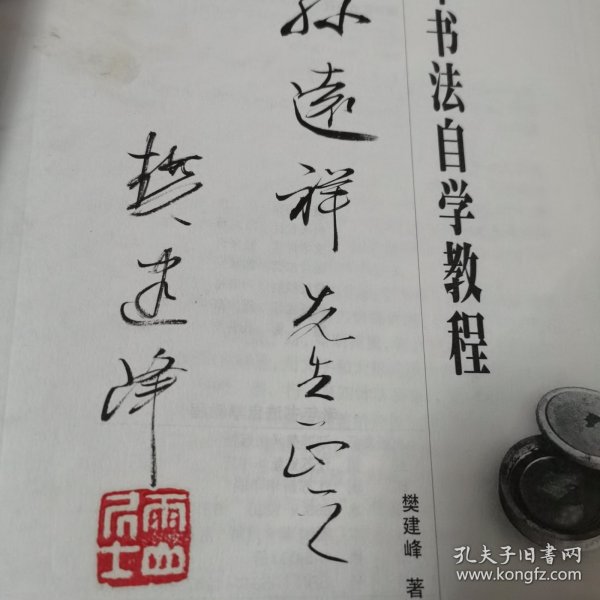 书法自学教程
孙远祥先生正之
樊建峰
樊建峰 著
孔夫子旧书网
www.kongfz.com